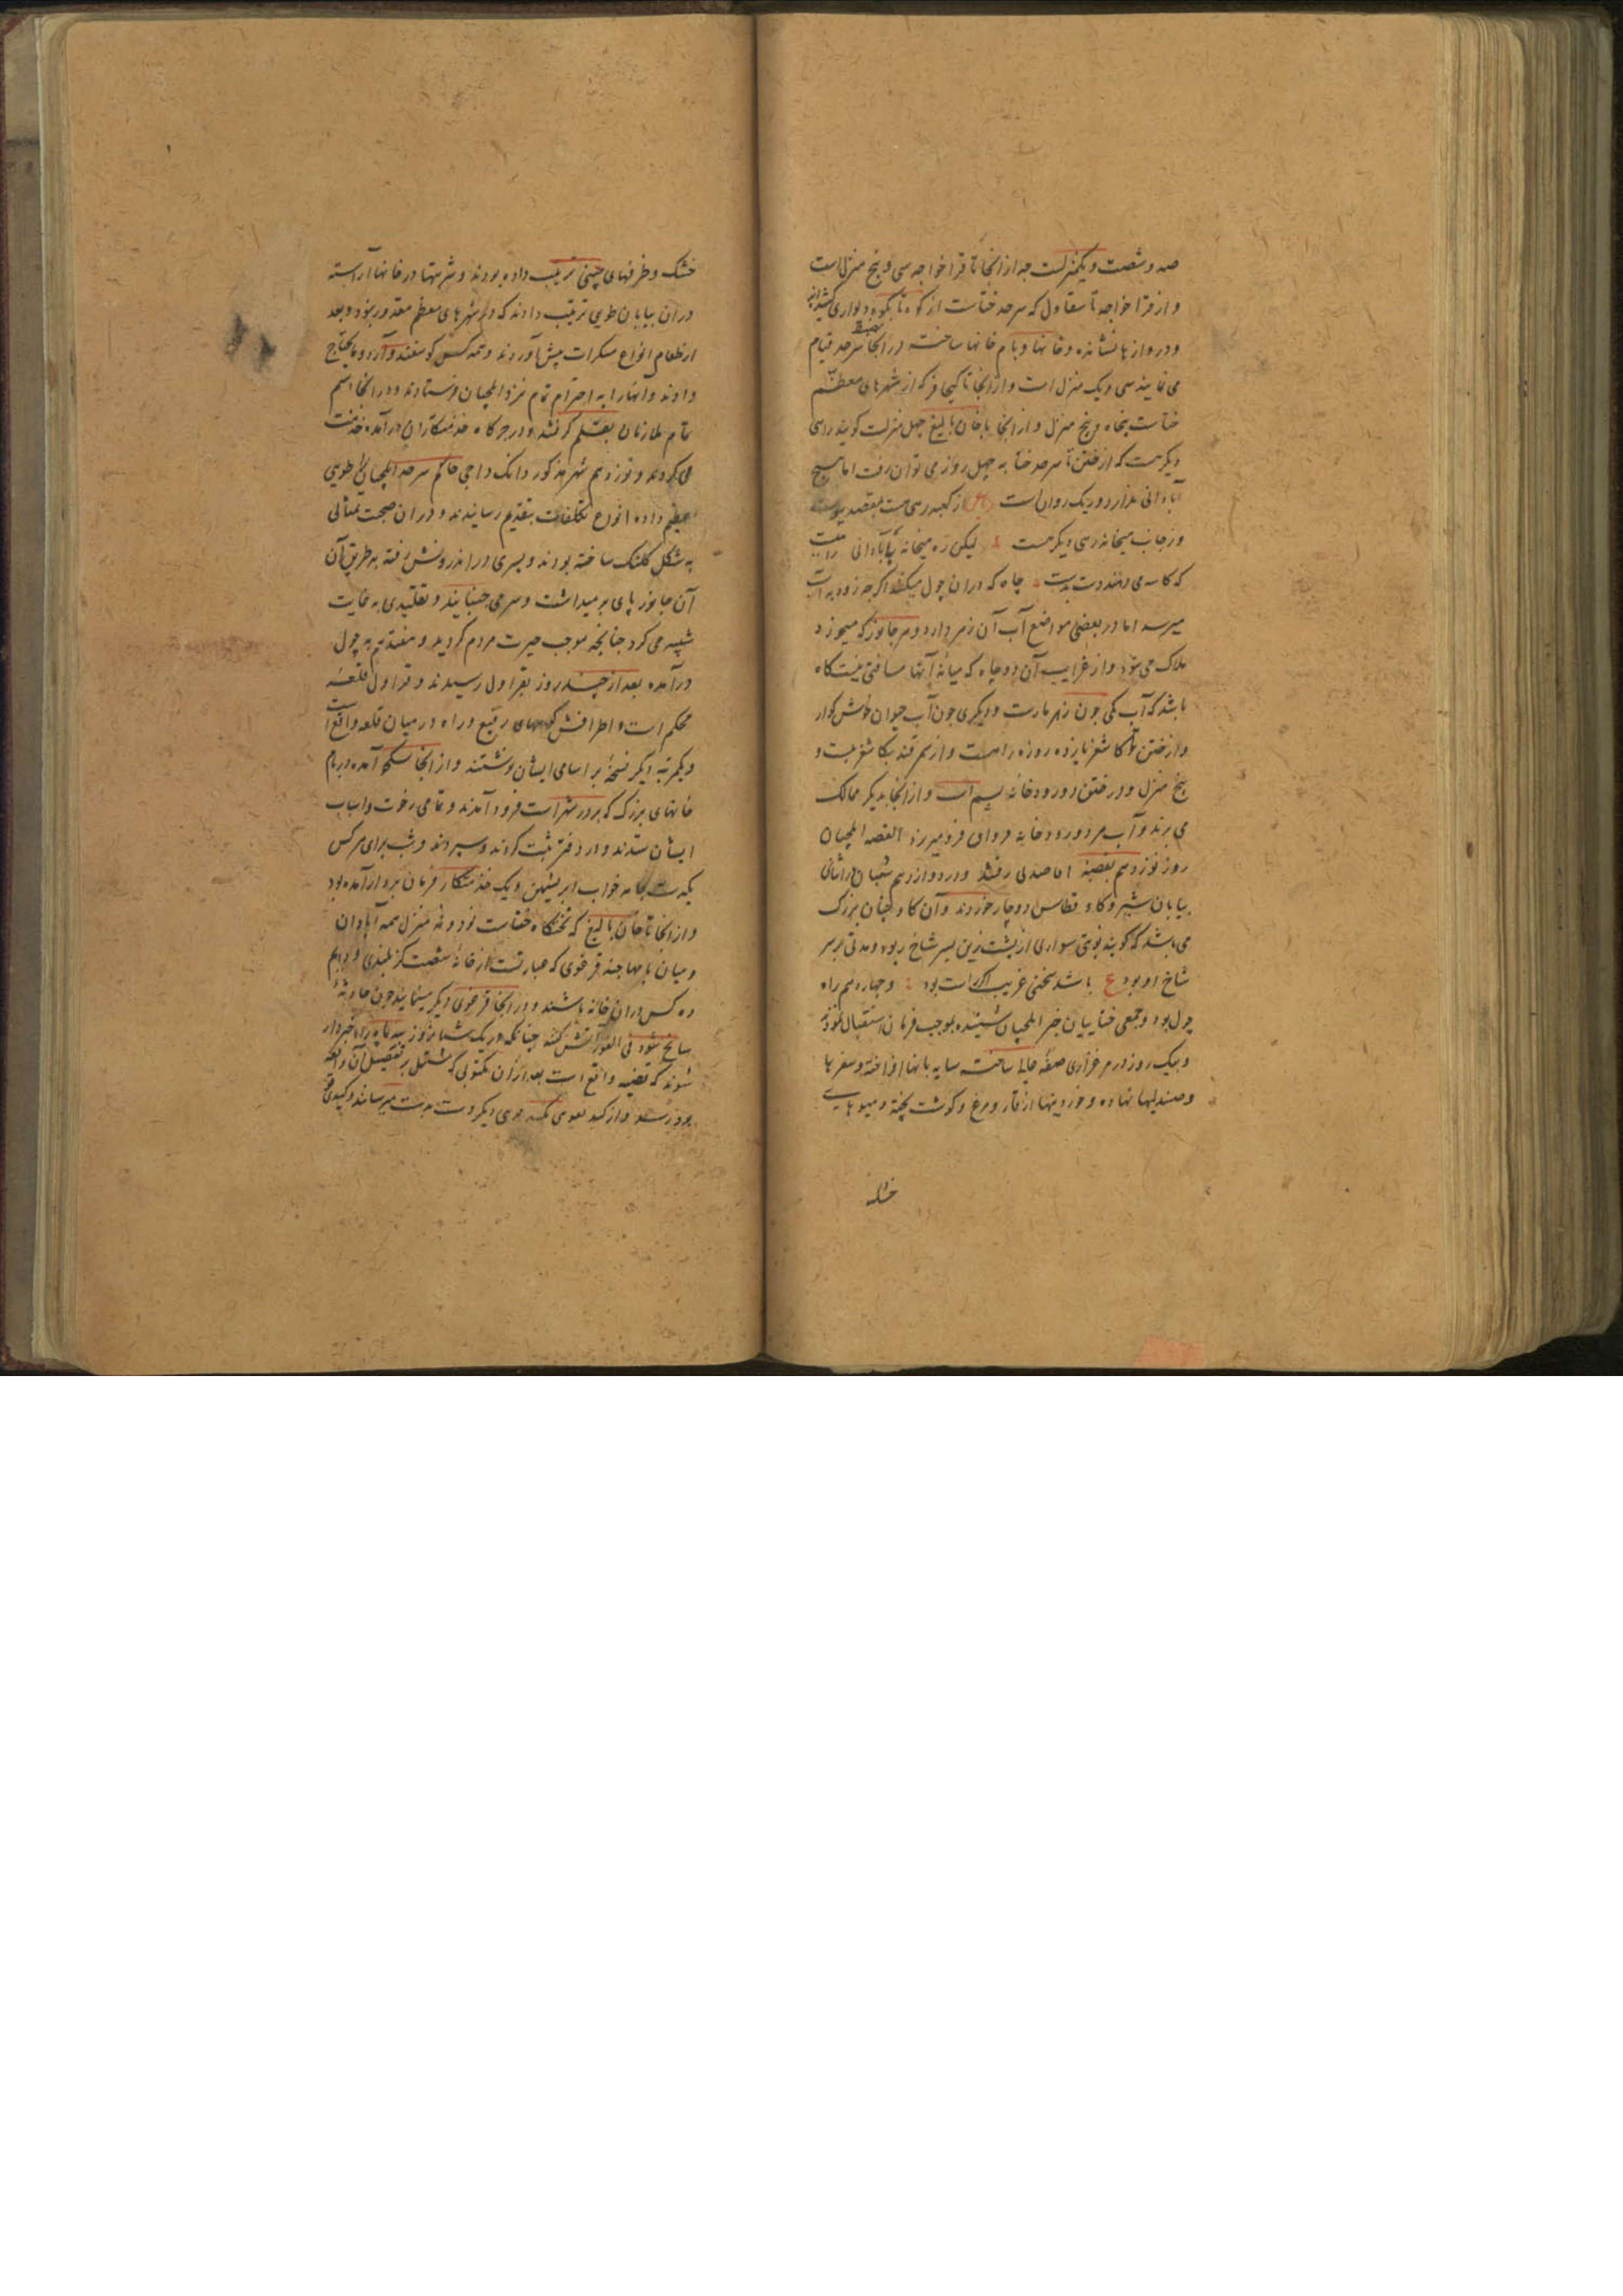 صد و شصت و یکمنزلست جه از انجا تا قراخواجه سی و پنج منزل است
و از قراخواجه تا سقاول که سرحد ختاست از کوه تا بکوه دیواری کشیده‌اند
و دروازها نشانده و خانها و یام خانها ساخته در انجا سرحد قیام
می نمایند سی و یک منزل است و از انجا تا که از شهرهای معظم
ختاست پنجاه و پنج منزل و از انجا تا خان بالیغ چهل منزلست گویند راهی
دیگر هست که از ختن تا سرحد ختا به چهل روز می توان رفت اما هیچ
آبادانی ندارد و ریک روان است ع از کعبه رهی هست بمقصد
وز جانب میخانه رهی دیگر هست لیکن ره میخانه بآبادانی راهیست
که کاسه می دهند دست بدست چاه که در ان چول میکنند اکرجه زود به آب
میرسد اما در بعضی مواضع آب آن زهر دارد و هر جانور که میخورد
هلاک می شود و از غرایب آن دو چاه که میانه آنها مسافتی نیست کاه
باشد که آب یکی جون زهر مارست و دیکری جون آب حیوان خوش کوار
و از ختن تا کاشغر پانزده روزه راهست و از سمرقند بکاشغر بیست و
پنج منزل و در ختن دو رودخانه یشم است و از انجا بدیکر ممالک
می برند و آب هر دو رودخانه فرو میرزد القصه ایلچیان
روز نوزدهم بقصبه رفتند و در دوازدهم شعبان در اثنای
بیابان شیر و کاو قطاس دوچار خوردند و آن کاو چنان بزرک
می باشد که کویند نوبتی سواری از پشت زین بسر شاخ ربود و مدتی بر سر
شاخ او بود ع باشد سخنی غریب اکر راست بود و چهاردهم راه
چول بود و جمعی ختاییان خبر ایلچیان شنیده بموجب فرمان استقبال نمودند
و بیک روز در مرغزاری صفه عالی ساخته سایه بانها افراخته و سفرها
و صندلیها نهاده و خوردنیها از قاز و مرغ و کوشت پخته و میوهای
خشک
خشک و ظرفهای چینی ترتیب داده بودند و شربتها در خانها آراسته
در ان بیابان طویی ترتیب دادند که در شهرهای معظم مقدور نبود و بعد
از طعام انواع مسکرات پیش آوردند و همه کس کوسفند و آرد و مایحتاج
دادند و آنها را به احترام تمام نزد ایلچیان فرستادند و در انجا اسم
تمام ملازمان بقلم کرفتند و در جرکاه خدمتکاران در آمده خدمت
می کردند و نوزدهم شهر مذکور دانک داجی حاکم سرحد ایلچیان را طویی
عظیم داده انواع تکلفات بتقدیم رسانیدند و در ان صحبت تمثالی
به شکل کلنک ساخته بودند و پسری در اندرونش رفته به طریق آن
آن جانور پای بر میداشت و سر می جنبانید و تقلیدی به غایت
شبیه می کرد چنانچه موجب حیرت مردم کردید و هفدهم به چول
درآمده بعد از چند روز بقراول رسیدند و قراول قلعه
محکم است و اطرافش کوههای رفیع و راه در میان قلعه واقع است
و یکمرتبه دیکر نسخه بر اسامی ایشان نوشتند و از انجا بسکجو آمده در یام
خانهای بزرک که بر در شهر است فرود آمدند و تمامی رخوت و اسباب
ایشان ستدند و در دفتر ثبت کردند و سپردند و شب برای هر کس
یکدست جامه خواب ابریشمین و یک خدمتکار فرمان بردار آمده بود
و از انجا تا خان بالیغ که تختکاه ختاست نود و نه منزل همه آبادان
و میان یامها چند قرغوی که عبارتست از خانه شصت کز بلندی و دایم
ده کس در ان خانه باشند و از انجا قرغوی دیکر مینمایند جون حادثه
سانح شود فی الفور آتش کنند جنانکه در یک شبانروز سه ماهه راه خبردار
شوند که قضیه واقع است بعد از ان مکتوبی که مشتمل بر تفصیل آن واقعه
بود و از دیکر دست بدست میرسانند و کیدی فو